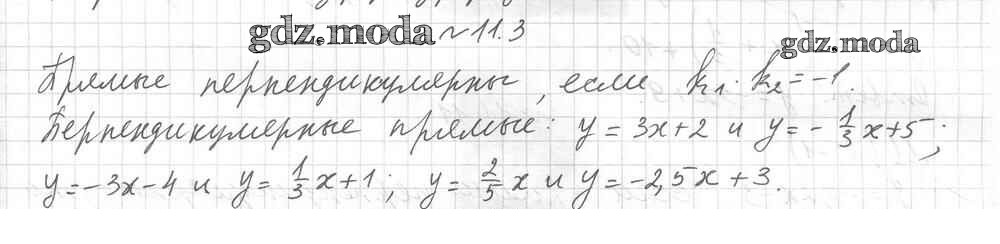 gdz.moda ~ 11.3 gdz.moda
Прямые перпендикулярны, если k₁ · k₂ = -1.
Перпендикулярные прямые: y = 3x + 2 и y = - 1/3 x + 5;
y = -3x - 4 и y = 1/3 x + 1; y = 2/5 x и y = -2,5x + 3.